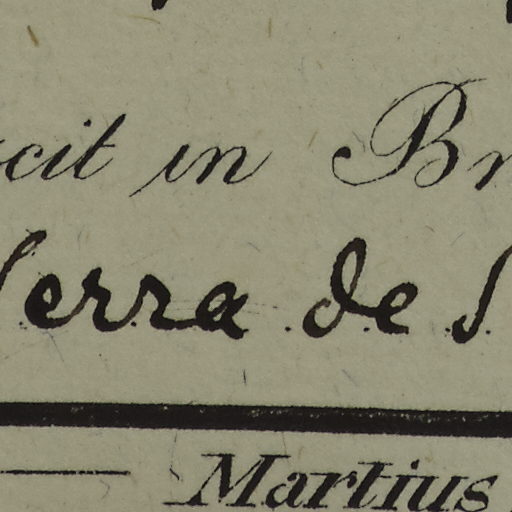 cit in Br
Serra de S
Martius